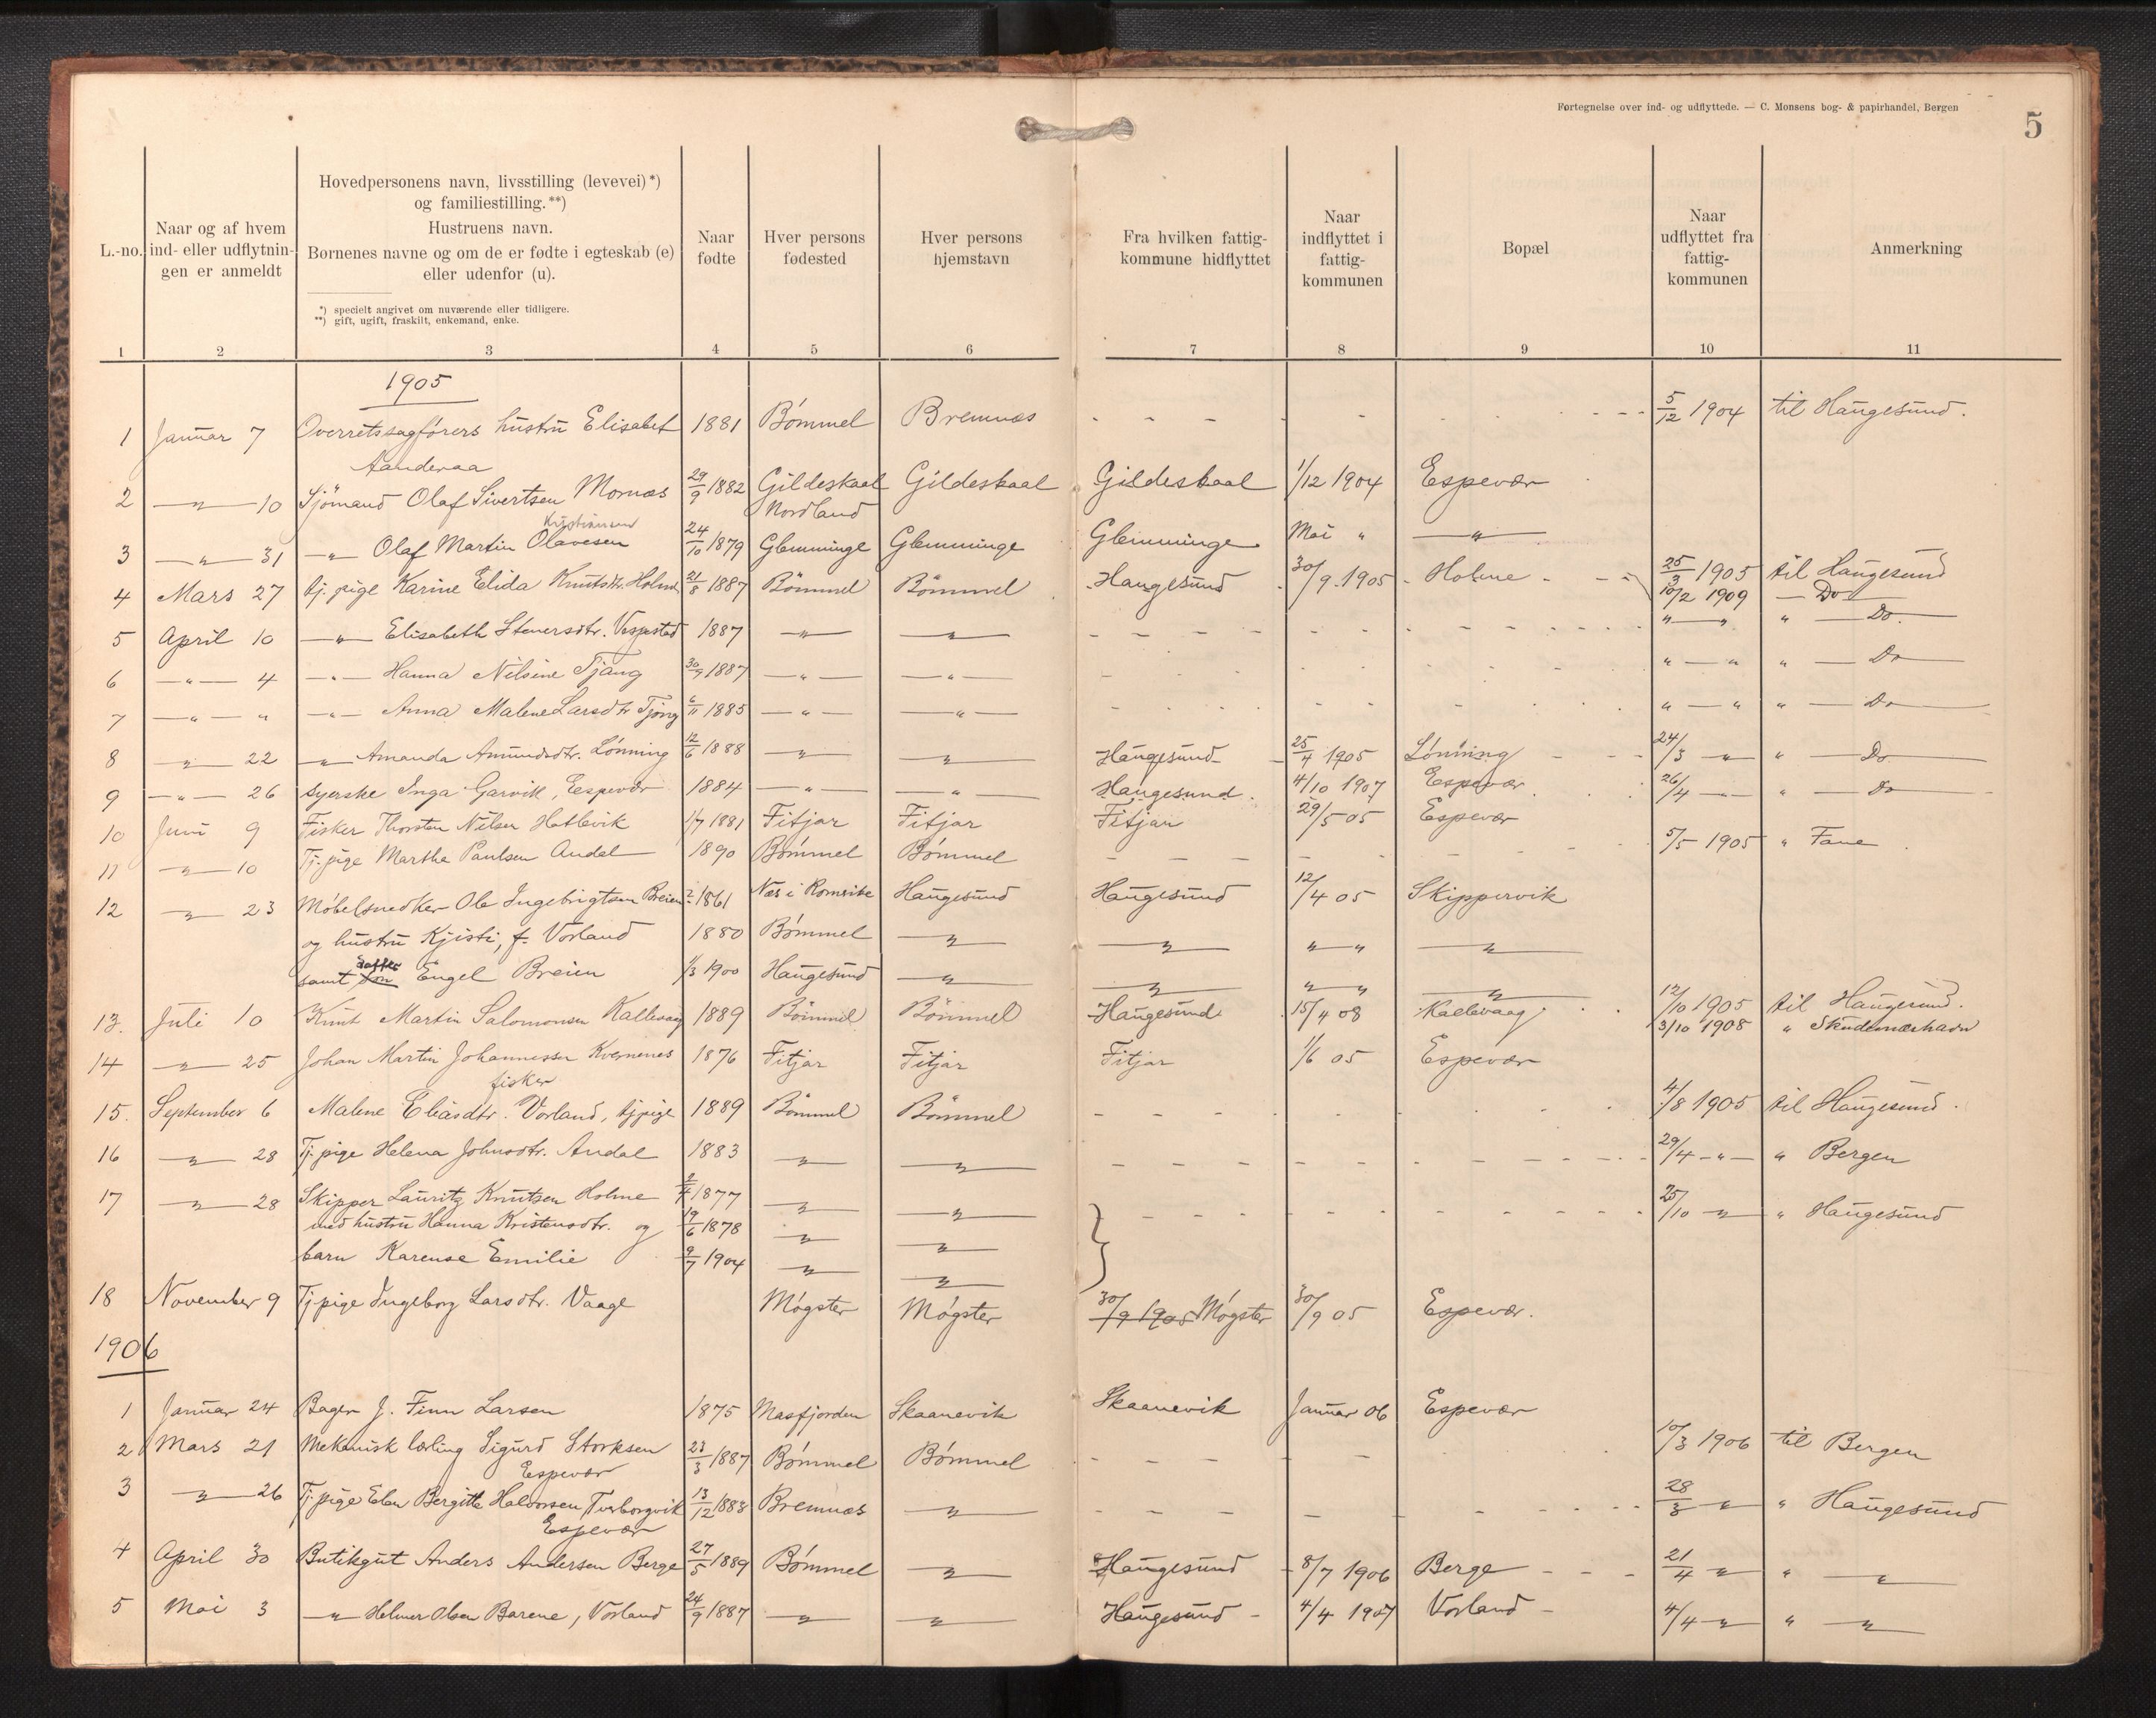 Fortegnelse over ind- og udflyttede. — C. Monsens bog- & papirhandel, Bergen
5
L.-no.
Naar og af hvem
ind- eller udflytnin-
gen er anmeldt
Hovedpersonens navn, livsstilling (levevei)*)
og familiestilling.**)
Hustruens navn.
Børnenes navne og om de er fødte i egteskab (e)
eller udenfor (u).
*) specielt angivet om nuværende eller tidligere.
**) gift, ugift, fraskilt, enkemand, enke.
Naar
fødte
Hver persons
fødested
Hver persons
hjemstavn
Fra hvilken fattig-
kommune hidflyttet
Naar
indflyttet i
fattig-
kommunen
Bopæl
Naar
udflyttet fra
fattig-
kommunen
Anmerkning
1 2 3 4 5 6 7 8 9 10 11
1905
1 Januar 7 Overretssagførers hustru Elisabet 1881 Bömmel Bremnæs - - - - - - 5/12 1904 til Haugesund.
Aanderaa
2 —"— 10 Sjömand Olaf Sivertsen Mornæs 29/9 1882 Gildeskaal Gildeskaal Gildeskaal 1/12 1904 Espevær
Nordland
Kristiansund
3 —"— 31 —"— Olaf Martin Olavesen 24/10 1879 Glemminge Glemminge Glemminge Mai " —"—
4 Mars 27 tj. pige Karine Elida Knutsdtr. Holme 21/8 1887 Bömmel Bömmel Haugesund 30/9 1905 Holme - - 25/3 1905 til Haugesund
10/2 1909 — Do
5 April 10 —"— Elisabeth Steversdtr. Vespestad 1887 —"— —"— - - - - - "—" " — Do.
6 —"— 4 —"— Hanna Nilsine Tjang 30/9 1887 —"— —"— - - - "—" " — Do
7 —"— " —"— Anna Malene Larsdtr Tjong 6/11 1885 —"— —"— - - - "—" " — Do
8 —"— 22 —"— Amanda Amundsdtr. Lönning 12/6 1888 —"— —"— Haugesund 25/4 1905 Lönning - - 24/3 —"— " — Do
9 —"— 26 syerske Inga Garvik, Espevær 1884 —"— —"— Haugesund. 4/10 1907 Espevær 26/4 —"— " — Do
10 Juni 9 Fisker Thorsten Nilsen Hatlevik 1/7 1881 Fitjar Fitjar Fitjar 29/5 05 Espevær
11 —"— 10 Tj. pige Marthe Paulsen Andal 1890 Bömmel Bömmel - - - - - 5/5 1905 " Fane
12 —"— 23 Möbelsnedker Ole Ingebrigtsen Breien 1861 Næs i Romsrike Haugesund Haugesund 12/4 05 Skippervik
og hustru Kjisti, f. Vorland 1880 Bömmel —"— —"— " " —"—
datter
samt Engel Breien 1/3 1900 Haugesund —"— —"— " " —"—
13. Juli 10 Knut Martin Salomonsen Kallevaag 1889 Bömmel Bömmel Haugesund 15/4 08 Kallevaag 12/10 1905 til Haugesund.
3/10 1908 " Skudeneshavn
14 —"— 25 Johan Martin Johannessen Kvernenes 1876 Fitjar Fitjar Fitjar 1/6 05 Espevær
fisker
15. September 6 Malene Eliasdtr. Vorland, tjpige 1889 Bömmel Bömmel - - - - 4/8 1905 til Haugesund.
16 —"— 28 Tj. pige Helena Johnsdtr. Andal 1883 —"— —"— - - - - 29/4 —"— " Bergen
17 —"— 28 Skipper Lauritz Knutsen Holme 2/4 1877 —"— —"— - - - - 25/10 —"— " Haugesund
med hustru Hanna Kristensdtr. og 19/6 1878 —"— —"—
barn Karense Emilie 9/7 1904 —"— —"—
18 November 9 Tj pige Ingeborg Larsdtr. Vaage Mögster Mögster 30/9 1905 Mögster 30/9 05 Espevær.
1906
1 Januar 24 Bager J. Finn Larsen 1875 Masfjorden Skaanevik Skaanevik Januar 06 Espevær
2 Mars 21 Mekanisk lærling Sigurd Storksen 23/3 1887 Bömmel Bömmel - - - - 10/3 1906 til Bergen
Espevær
3 —"— 26 Tj. pige Elen Bergitte Halvorsen, Tverborgvik 13/12 1883 Bremnæs —"— - - - - 28/3 —"— " Haugesund
Espevær
4 April 30 Butikgut Anders Andersen Berge 27/5 1889 Bömmel —"— Haugesund 8/7 1906 Berge - - - 21/4 —"— " —"—
5 Mai 3 —"— Helmer Olsen Barene, Vorland 24/9 1887 —"— —"— Haugesund - 4/4 1907 Vorland - 4/4 —"— " —"—